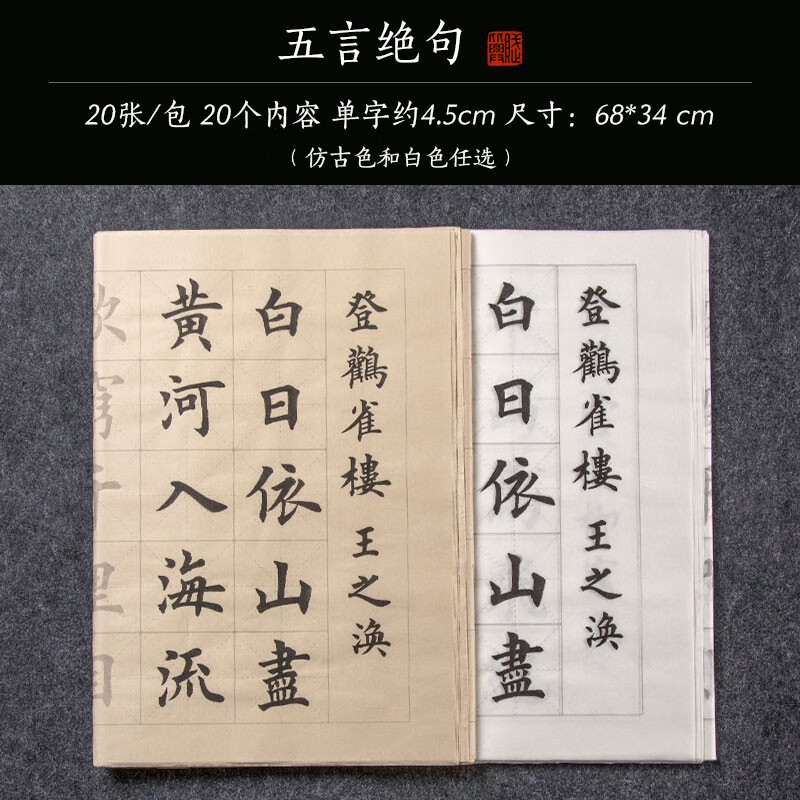 五言绝句
20张/包 20个内容 单字约4.5cm 尺寸：68*34 cm
（仿古色和白色任选）
登鸛雀樓 王之渙
白日依山盡
黄河入海流
欲窮千里目
登鸛雀樓 王之渙
白日依山盡